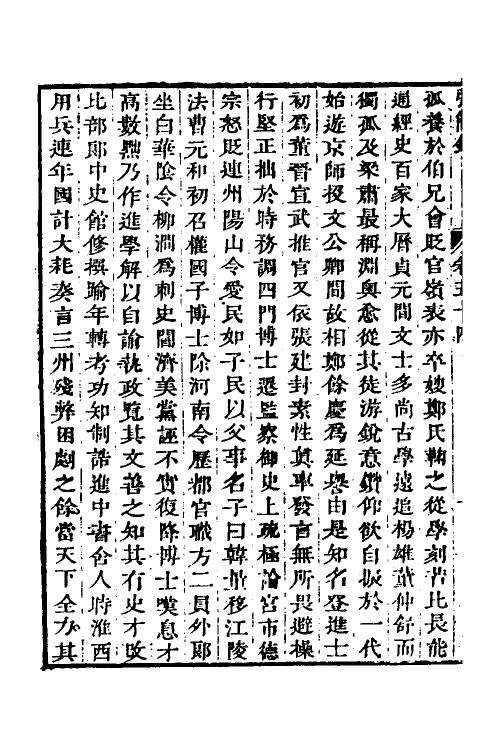 孤養於伯兄會貶官嶺表亦卒嫂鄭氏鞠之從學刻苦比長能
通經史百家大曆貞元間文士多尚古學遠追楊雄董仲舒而
獨孤及梁肅最稱淵奧愈從其徒游銳意鑽仰欲自振於一代
始遊京師投文公卿間故相鄭餘慶為延譽由是知名登進士
初為董晉宣武推官又依張建封素性真率發言無所畏避操
行堅正拙於時務調四門博士遷監察御史上疏極論宮市德
宗怒貶連州陽山令愛民如子民以父事名子曰韓量移江陵
法曹元和初召權國子博士除河南令歷都官職方二員外郎
坐白華陰令柳澗為刺史閻濟美黨誣不實復降博士嘆息才
高數黜乃作進學解以自諭執政覽其文善之知其有史才改
比部郎中史館修撰踰年轉考功知制誥進中書舍人時淮西
用兵連年國計大耗奏言三州殘弊困劇之餘當天下全力其